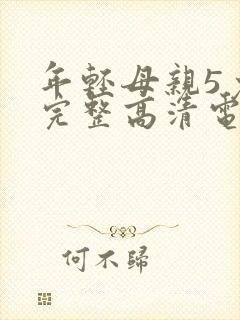 年輕母親5
完整高清電
何不歸